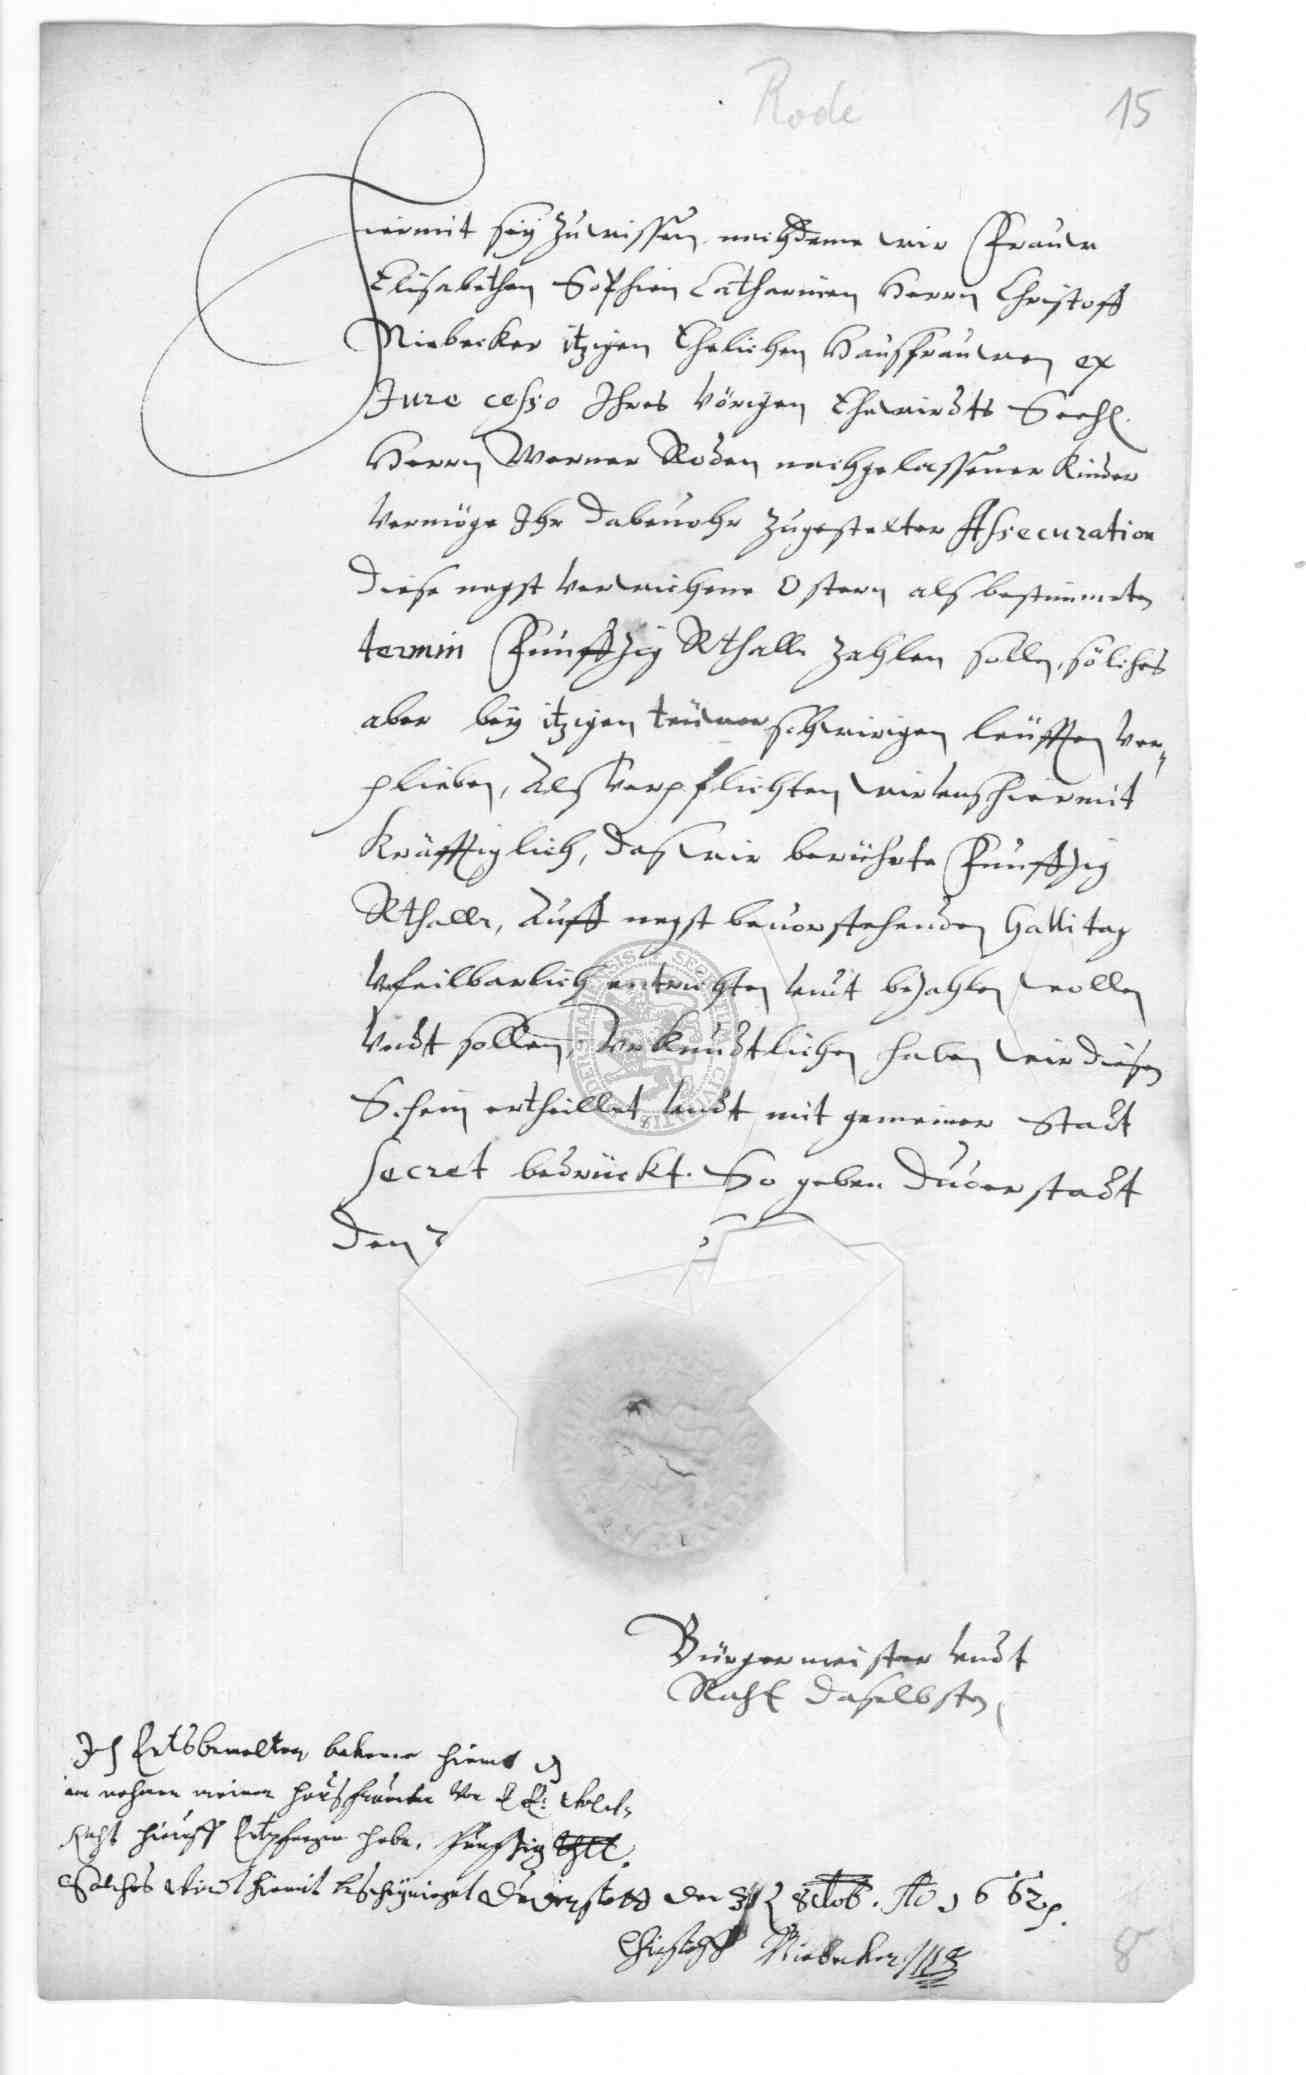 Rode
15
Hiermit seÿ Zuwissen, nachdeme wir Frauw
Elisabethen Sophien Catharinen Herrn Christoff
Niebecker itzigen Ehelichen Hausfrauwen ex
Jure cesso Ihres Vörigen Ehewirdts Seehl.
Herrn Werner Roden nachgelassener Kinder
Vermöge Ihr dabeuohr zugestelter Assecuration
diese negst verwichene Ostern als bestimmeten
termin Funffzig Rthallr zahlen sollen, sölches
aber beÿ itzigen schwirigen leüfften ver-
plieben, Als verpflichten wir unß hiermit
Kräfftiglich, daß wir berührte Funfftzig
Rthallr, Auff negst beuorstehenden Galli tag
Vnfeilbarlich entrichten undt bezahlen wollen
Vndt sollen, Urkundtlichen haben wir diesen
Schein ertheillet undt mit gemeiner Stadt
Secret bedrückt. So geben Duderstadt
den
SECRETUM CIVITATIS
Bürgermeister undt
Raht daselbsten
Ich bekenne
im nahmen meiner haußfrauwen von
Raht hierauff Entpfangen habe, funffzig
Solches wird hiermit bescheiniget Duderstadt den 8tob. Ao 1662
Christoff Niebecker
8